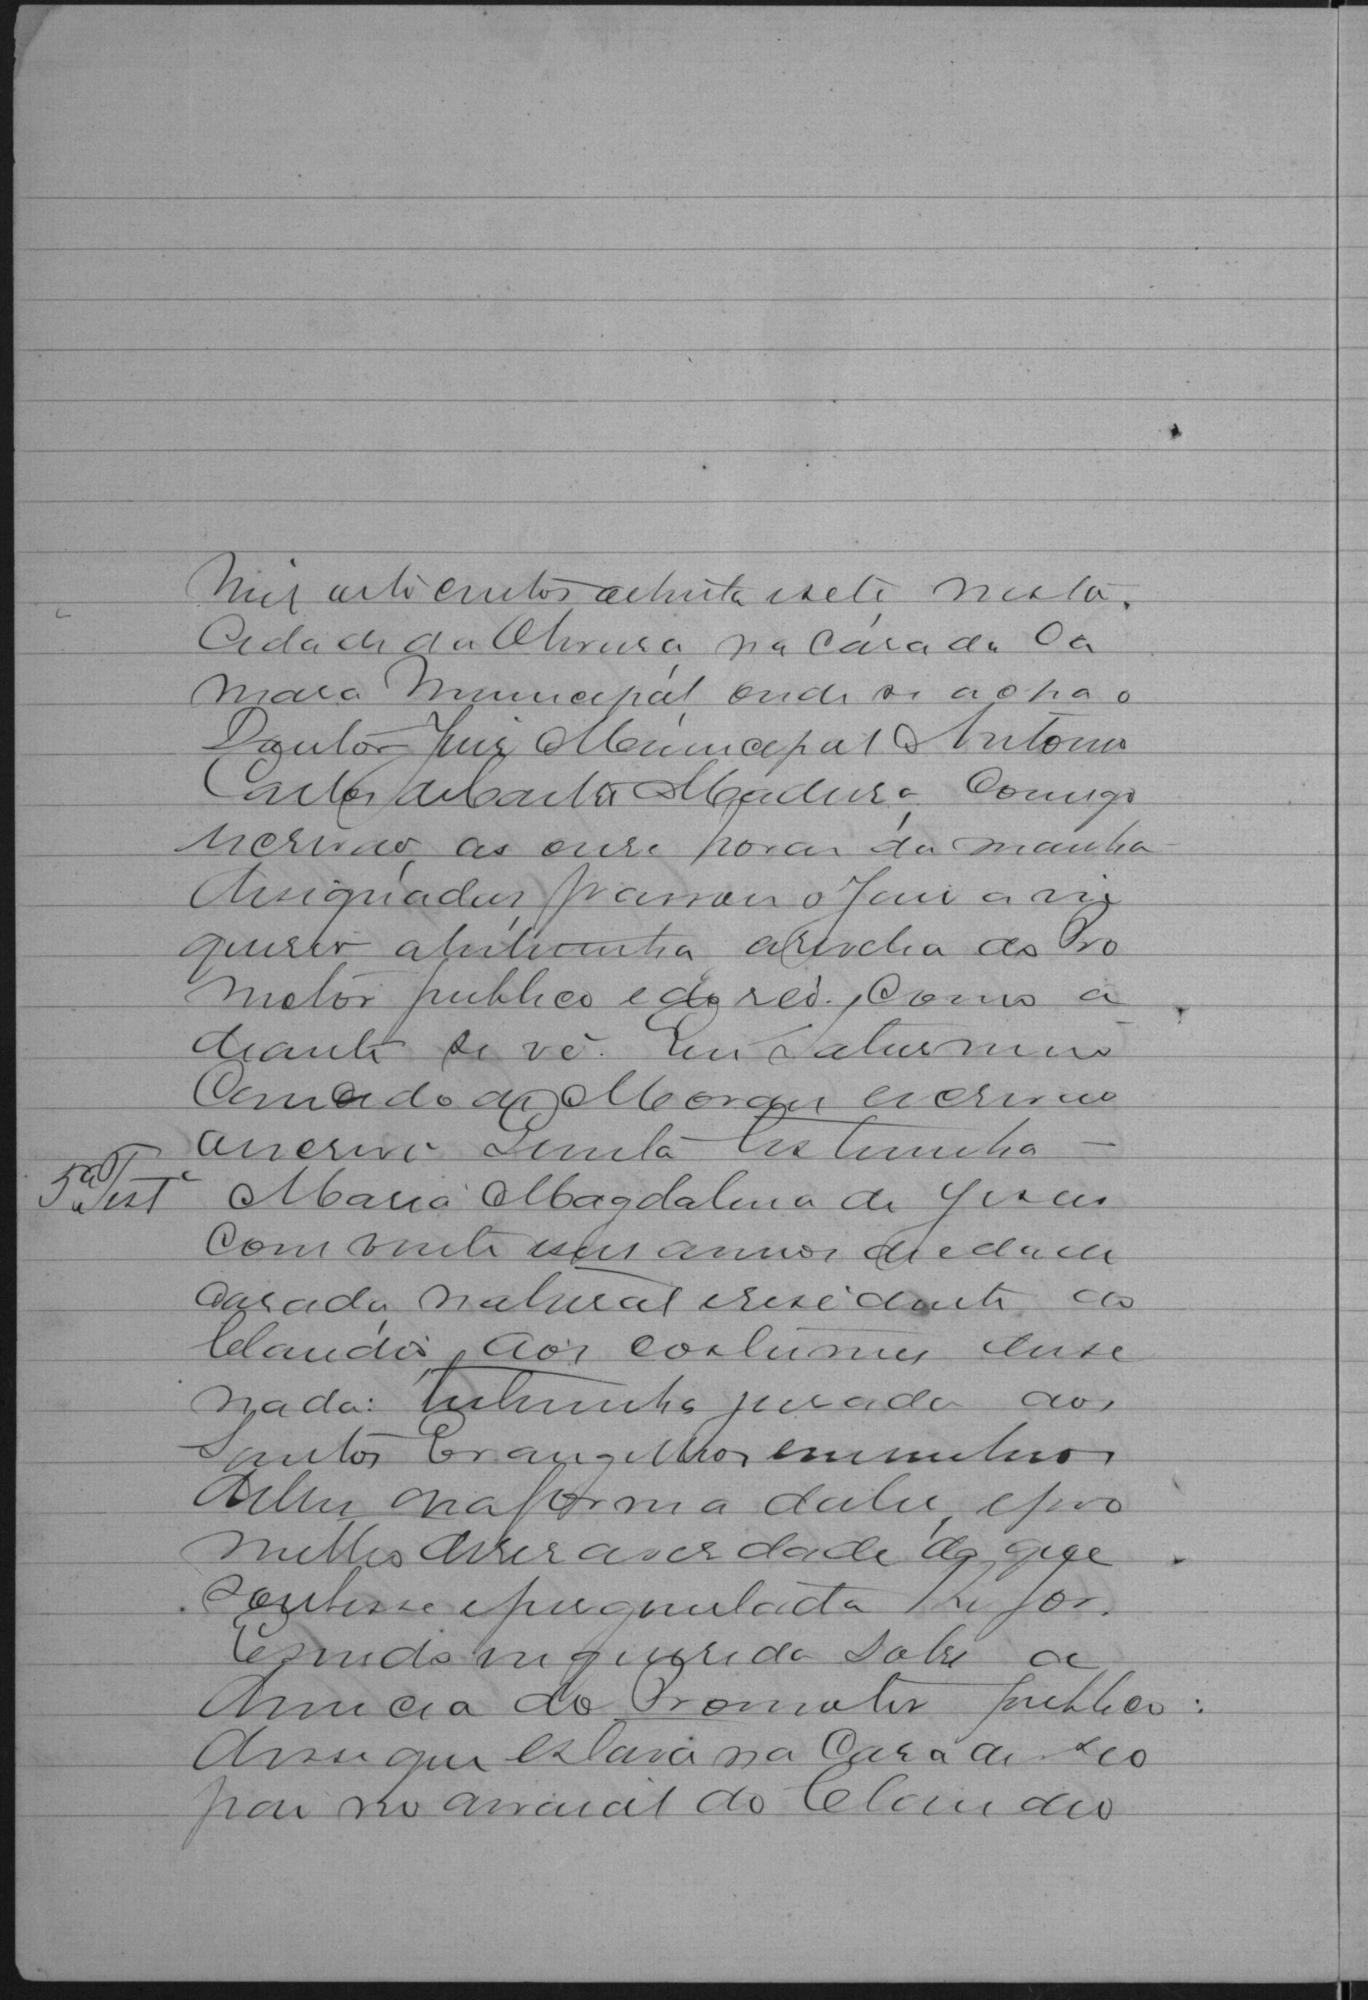 mil oitocentos oitenta esete, nesta
Cidade da Oliveira, na Casa da Ca
mara Municipal, onde se acha o
Doutor Juiz Municipal Antonio
Carlos de Castro Madeira, Comigo
escrivão, as onze horas da manha
designadas, passou o Juiz a in
querir atestemunha arevelia do Pro
motor publico edo reo, Como a
diante se vê. Eu Saturnino
de Moraes escrivão
oescrivi Quinta testemunha —
5ª Testª Maria Magdalena de Jesus
Com vinte eseis annos de edade
Casada, natural eresidente do
Claudio, aos costumes disse
nada: testemunha jurada aos
Santos Evangelhos em um livro
delles na forma da lei, epro
metteo dizer averdade do que
soubesse eperguntada lhe for.
Esendo inquerida sobre a
denucia do Promotor publico:
disse que estava na Casa de seo
pai no arraial do Claudio